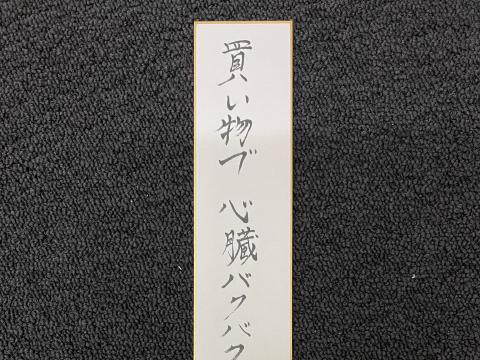 買い物ブ 心臓バクバク